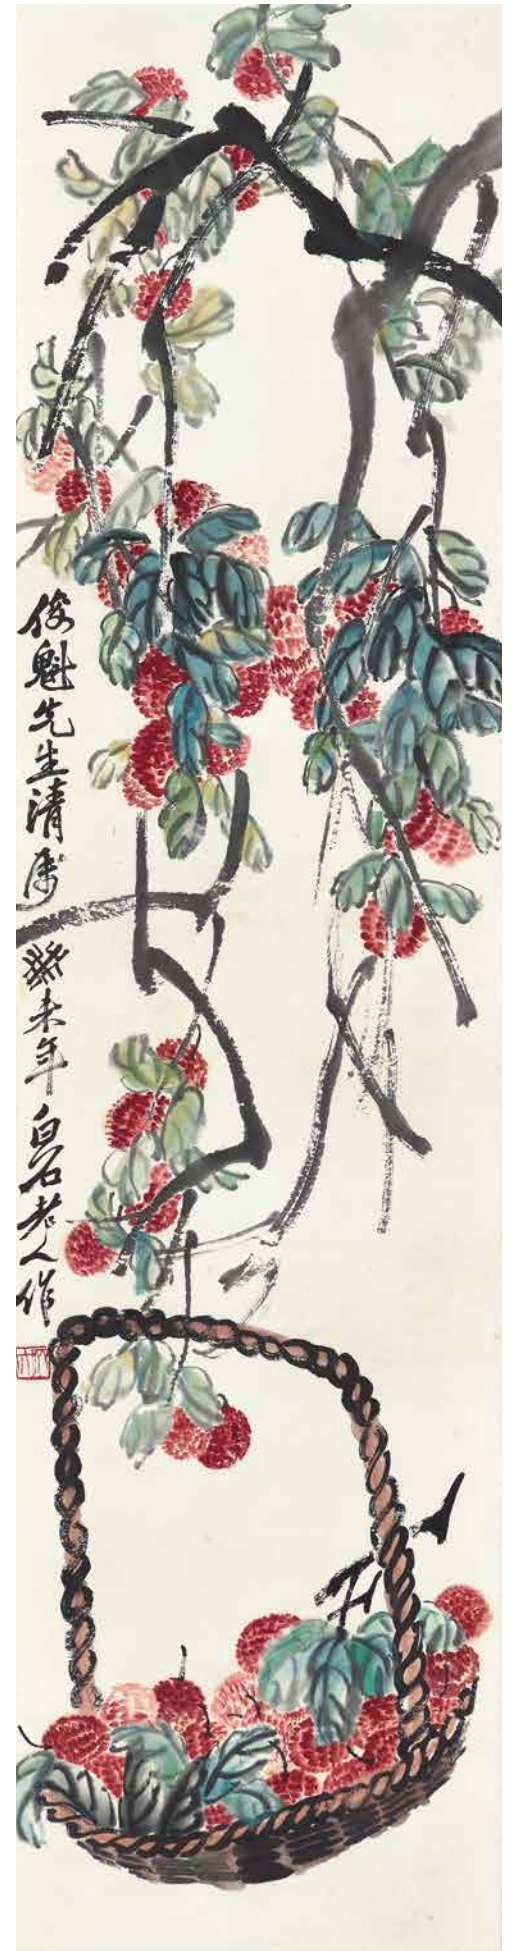 俊魁先生清属 癸未年白石老人作